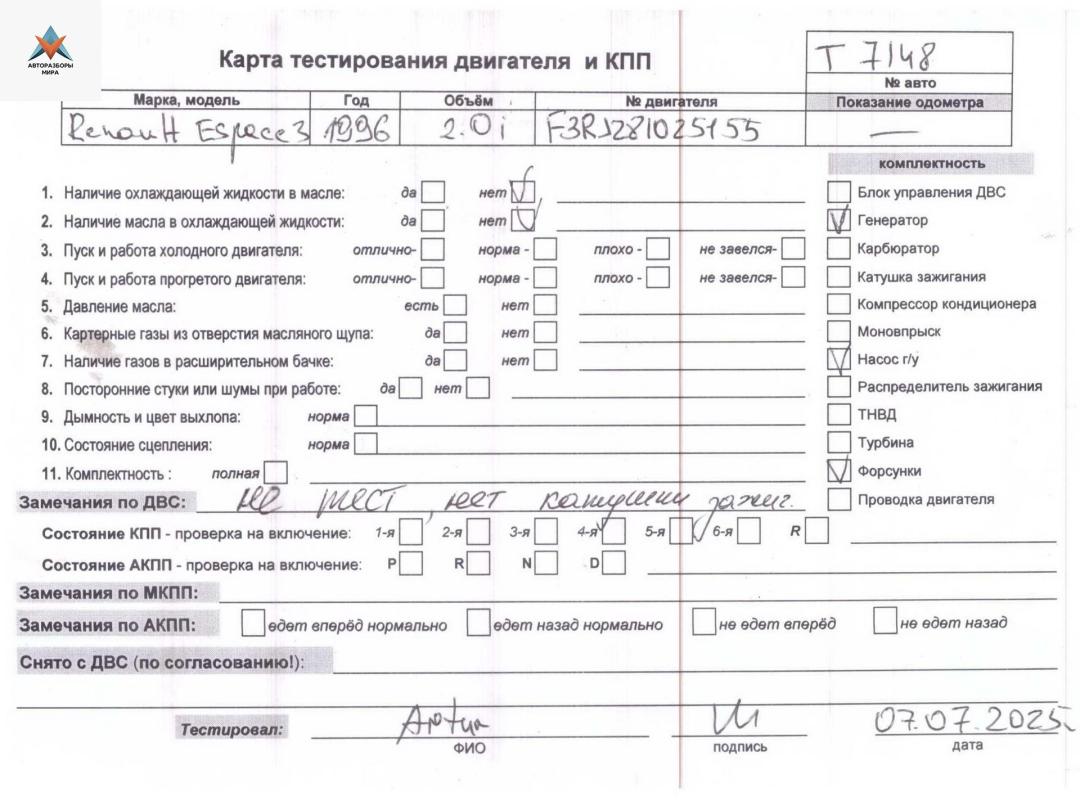 АВТОРАЗБОРЫ
МИРА
Карта тестирования двигателя и КПП
T 7148
№ авто
Марка, модель Год Объём № двигателя Показание одометра
Renault Espace 3 1996 2.0 i F3RJ281025155 —
комплектность
1. Наличие охлаждающей жидкости в масле: да нет Блок управления ДВС
2. Наличие масла в охлаждающей жидкости: да нет Генератор
3. Пуск и работа холодного двигателя: отлично- норма - плохо - не завелся- Карбюратор
4. Пуск и работа прогретого двигателя: отлично- норма - плохо - не завелся- Катушка зажигания
5. Давление масла: есть нет Компрессор кондиционера
6. Картерные газы из отверстия масляного щупа: да нет Моновпрыск
7. Наличие газов в расширительном бачке: да нет Насос г/у
8. Посторонние стуки или шумы при работе: да нет Распределитель зажигания
9. Дымность и цвет выхлопа: норма ТНВД
10. Состояние сцепления: норма Турбина
11. Комплектность : полная Форсунки
Замечания по ДВС: не тест, нет катушки зажиг. Проводка двигателя
Состояние КПП - проверка на включение: 1-я 2-я 3-я 4-я 5-я 6-я R
Состояние АКПП - проверка на включение: P R N D
Замечания по МКПП:
Замечания по АКПП: едет вперёд нормально едет назад нормально не едет вперёд не едет назад
Снято с ДВС (по согласованию!):
Тестировал: Artur 07.07.2025
ФИО подпись дата